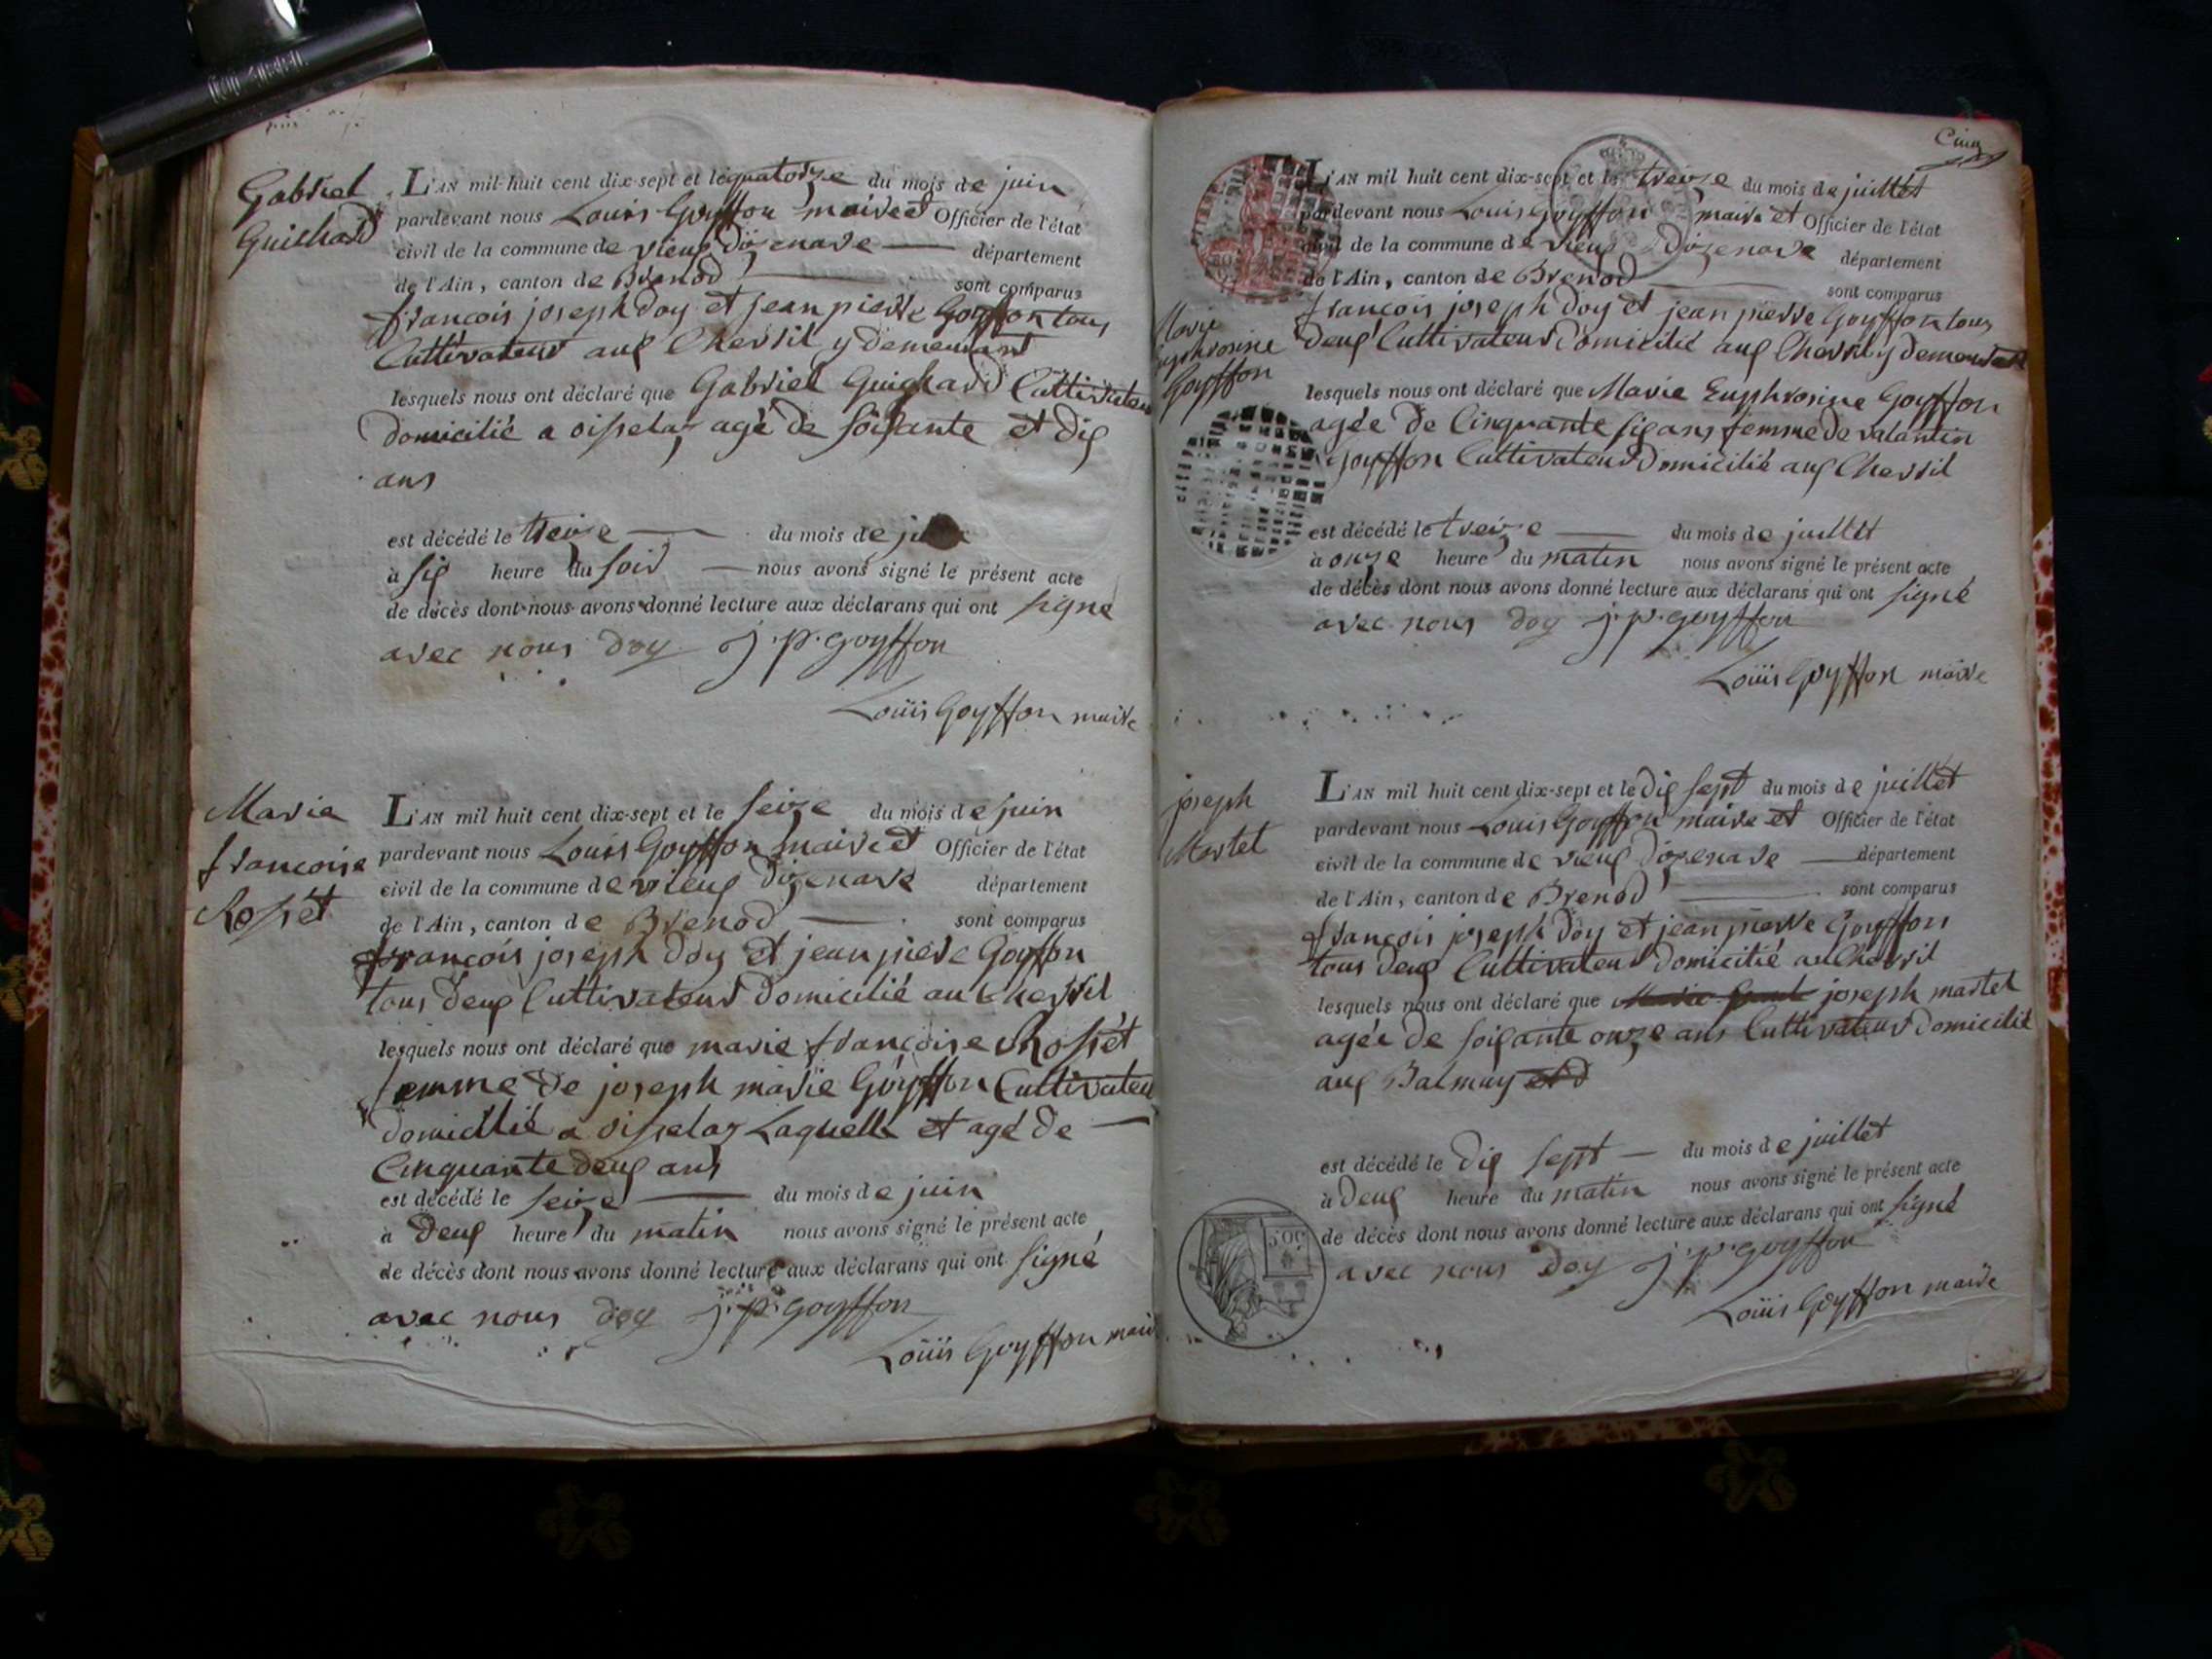 Gabriel
Guichard
L'AN mil huit cent dix-sept et le quatorze du mois de juin
pardevant nous Louis Goyffon maire et Officier de l'état
civil de la commune de vieux dizenave département
de l'Ain, canton de Brenod sont comparus
françois joseph doy et jean pierre Goyffon tous
Cultivateur aux Chevril y demeurant
lesquels nous ont déclaré que Gabriel Guichard Cultivateur
domicilié a oisselaz agé de soixante et dix
ans
est décédé le treize du mois de
à six heure du soir nous avons signé le présent acte
de décès dont nous avons donné lecture aux déclarans qui ont signé
avec nous doy j.p. goyffon
Louis Goyffon maire
Marie
francoise
Rosset
L'AN mil huit cent dix-sept et le seize du mois de juin
pardevant nous Louis Goyffon maire et Officier de l'état
civil de la commune de vieux dizenave département
de l'Ain, canton de Brenod sont comparus
françois joseph doy et jean piere Goyffon
tous deux Cultivateur domicilié au Chevril
lesquels nous ont déclaré que marie françoise Rosset
femme de joseph marie Goyffon Cultivateu
domicilié a oisselaz Laquelle et agé de
Cinquante deux ans
est décédé le seize du mois de juin
à deux heure du matin nous avons signé le présent acte
de décès dont nous avons donné lecture aux déclarans qui ont signé
avec nous doy j.p. goyffon
Louis Goyffon mair
Cinq
L'AN mil huit cent dix-sept et le treize du mois de juillet
pardevant nous Louis Goyffon maire et Officier de l'état
civil de la commune de vieux dizenave département
de l'Ain, canton de Brenod sont comparus
françois joseph doy et jean pierre Goyffon tous
deux Cultivateur domicilié aux Chevril y demeurant
Marie
Euphrosine
Goyffon
lesquels nous ont déclaré que Marie Euphrosine Goyffon
agée de Cinquante six ans femme de valantin
Goyffon Cultivateur domicilié aux Chevril
est décédé le treize du mois de juillet
à onze heure du matin nous avons signé le présent acte
de décès dont nous avons donné lecture aux déclarans qui ont signé
avec nous doy j.p. goyffon
Louis Goyffon maire
joseph
Martel
L'AN mil huit cent dix-sept et le dix sept du mois de juillet
pardevant nous Louis Goyffon maire et Officier de l'état
civil de la commune de vieux dizenave département
de l'Ain, canton de Brenod sont comparus
françois joseph doy et jean pierre Goyffon
tous deux Cultivateur domicilié au Chevril
lesquels nous ont déclaré que joseph martel
agée de soixante onze ans Cultivateur domicilié
aux Balmay et d
est décédé le dix sept du mois de juillet
à deux heure du matin nous avons signé le présent acte
de décès dont nous avons donné lecture aux déclarans qui ont signé
avec nous doy j.p. goyffon
Louis Goyffon maire